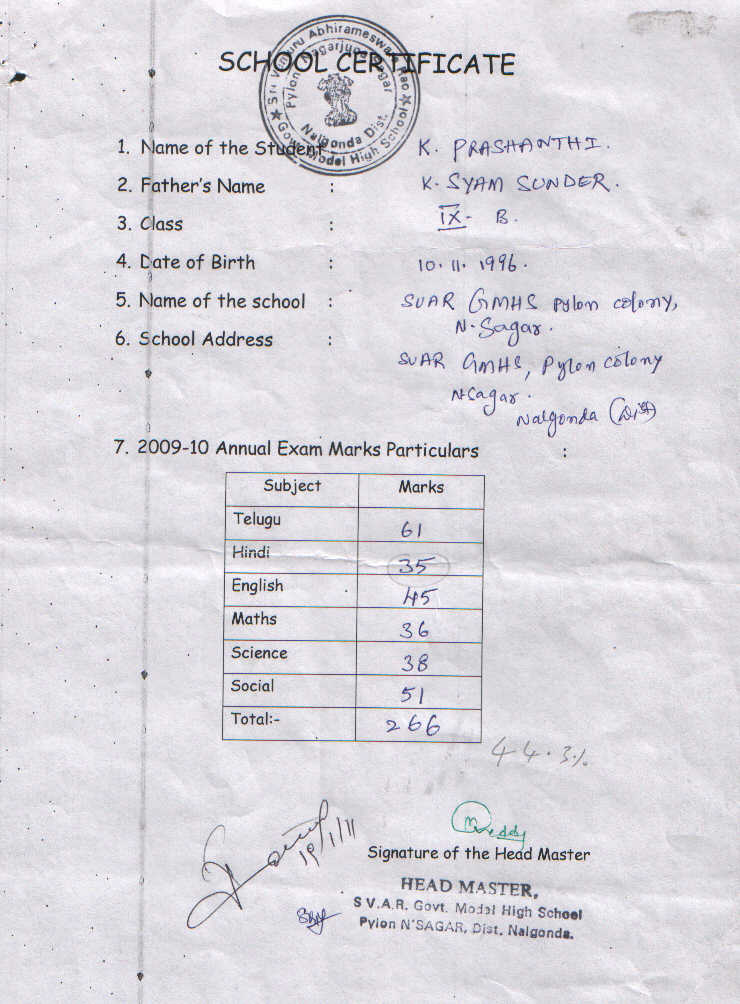 Sri Vunnuru Abhirameswara Rao
Pylon Nagarjuna Sagar
Nalgonda Dist.
Govt. Model High School
SCHOOL CERTIFICATE
1. Name of the Student K. PRASHANTHI.
2. Father's Name : K. SYAM SUNDER.
3. Class : IX - B.
4. Date of Birth : 10. 11. 1996.
5. Name of the school : SVAR GMHS Pylon colony,
N. Sagar.
6. School Address :
SVAR GMHS, Pylon colony
N Sagar.
Nalgonda (Dist)
7. 2009-10 Annual Exam Marks Particulars :
Subject Marks
Telugu 61
Hindi 35
English 45
Maths 36
Science 38
Social 51
Total:- 266
44.3%
19/1/11
Reddy
Signature of the Head Master
HEAD MASTER,
S V.A.R. Govt. Model High School
Pylon N'SAGAR, Dist. Nalgonda.